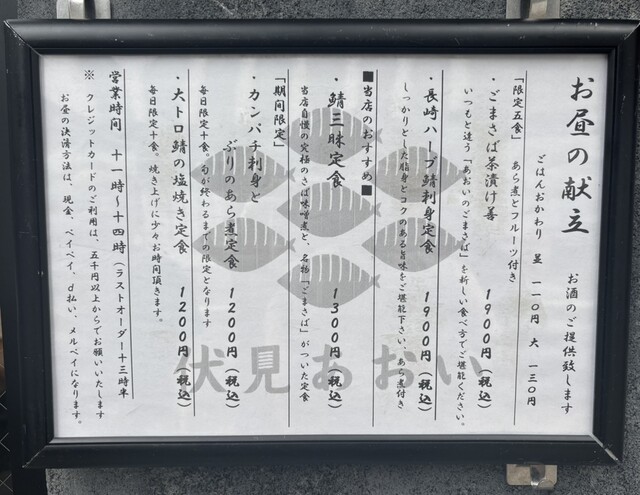 お昼の献立
お酒のご提供致します
ごはんおかわり 並 一一〇円 大 一三〇円
「限定五食」 あら煮とフルーツ付き
・ごまさば茶漬け善 1900円（税込）
いつもと違う「あおいのごまさば」を新しい食べ方でご堪能ください。
・長崎ハーブ鯖刺身定食 1900円（税込）
しっかりとした脂身とコクのある旨味をご堪能下さい、あら煮付き
■当店のおすすめ■
・鯖三昧定食 1300円（税込）
当店自慢の究極のさば味噌煮と、名物「ごまさば」がついた定食
「期間限定」
・カンパチ刺身と
ぶりのあら煮定食 1200円（税込）
毎日限定十食、旬が終わるまでの限定となります
・大トロ鯖の塩焼き定食 1200円（税込）
毎日限定十食。焼き上げに少々お時間頂きます。
営業時間 十一時～十四時（ラストオーダー十三時半
※ クレジットカードのご利用は、五千円以上からでお願いいたします
お昼の決済方法は、現金、ペイペイ、d払い、メルペイになります。
伏見あおい